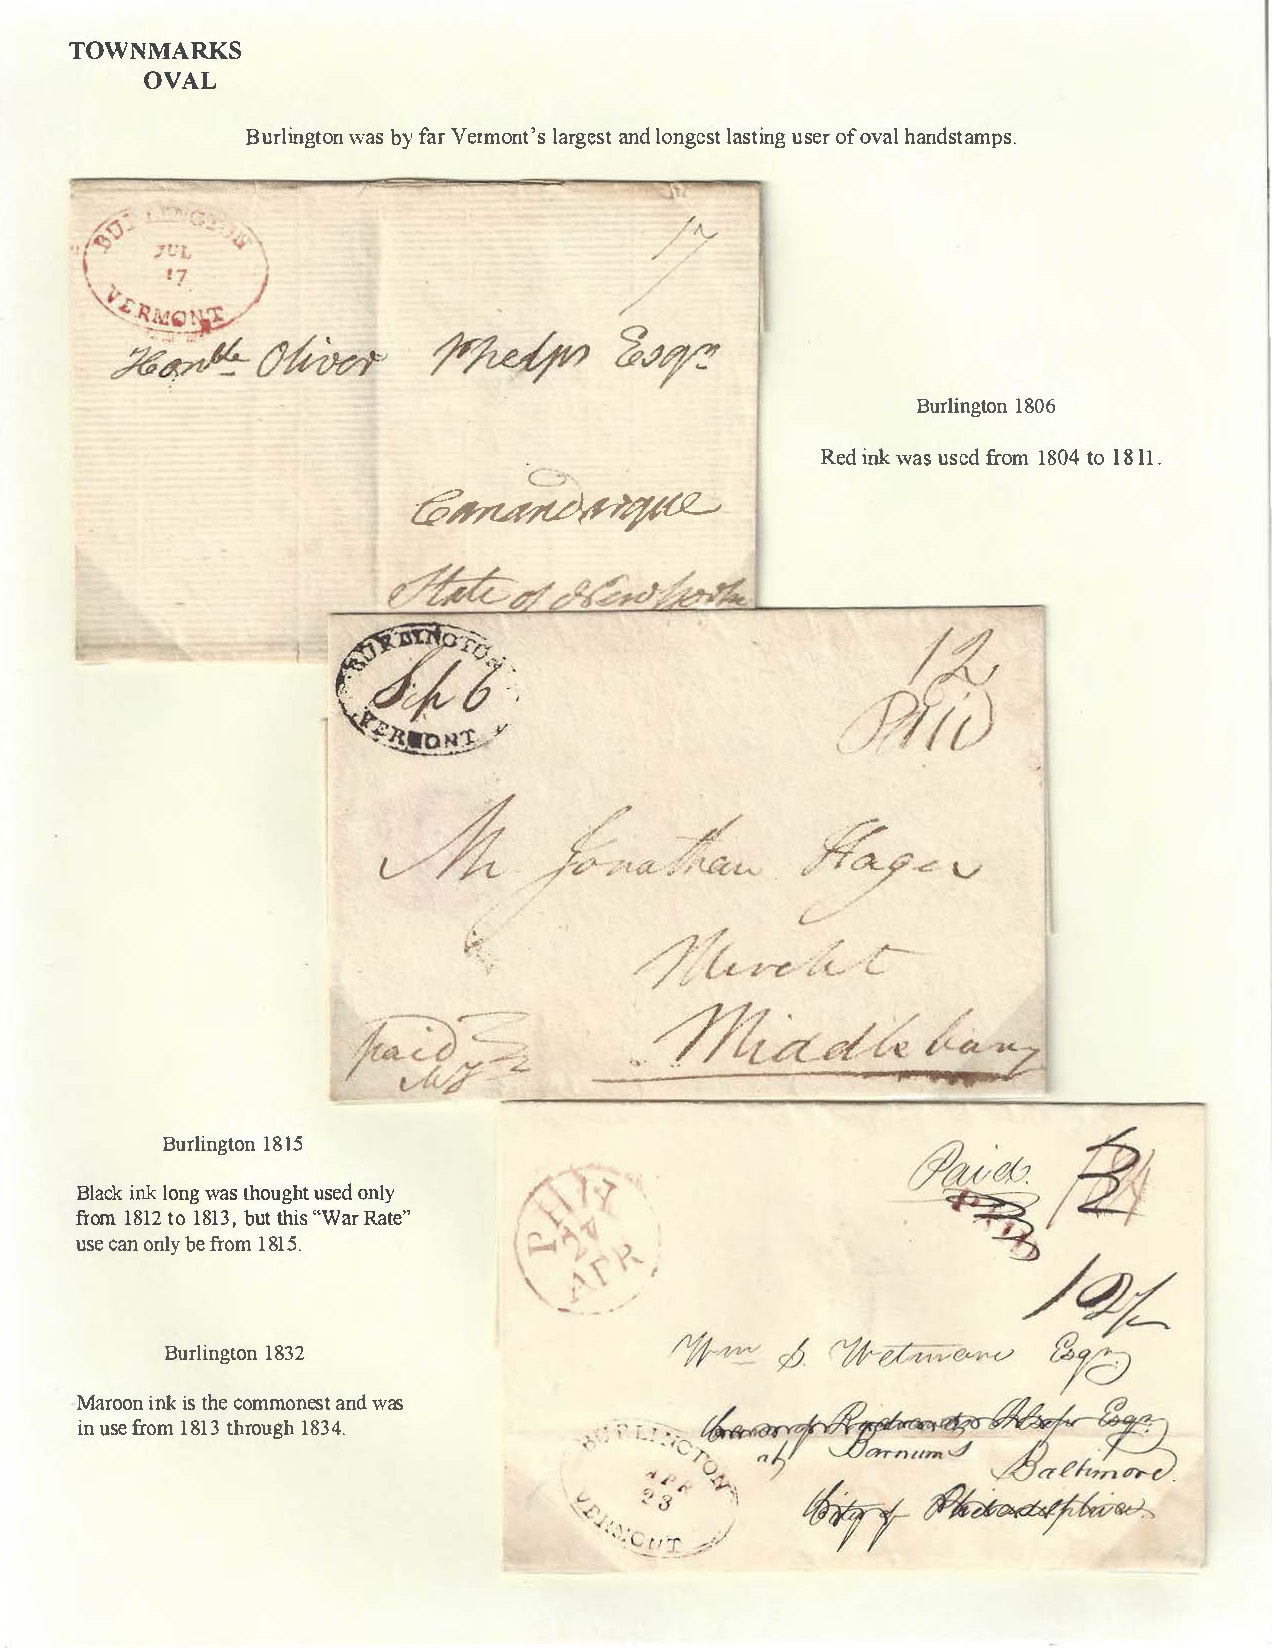 TOWNMARKS
OVAL
Burlington was by far Vermont's largest and longest lasting user of oval handstamps.
BURLINGTON
JUL
17
VERMONT
17
Honble Oliver Phelps Esqr
Canandaique
State of New York
Burlington 1806
Red ink was used from 1804 to 1811.
BURLINGTON
Sep 6
VERMONT
12
Paid
Mr Jonathan Hager
Mercht
Middlebury
paid
Burlington 1815
Black ink long was thought used only
from 1812 to 1813, but this “War Rate”
use can only be from 1815.
Burlington 1832
Maroon ink is the commonest and was
in use from 1813 through 1834.
PHIL
24
APR
Paid.
PAID
12½
Wm S. Wetmore Esqr
at Barnums
Baltimore
City of Philadelphia
BURLINGTON
APR
23
VERMONT